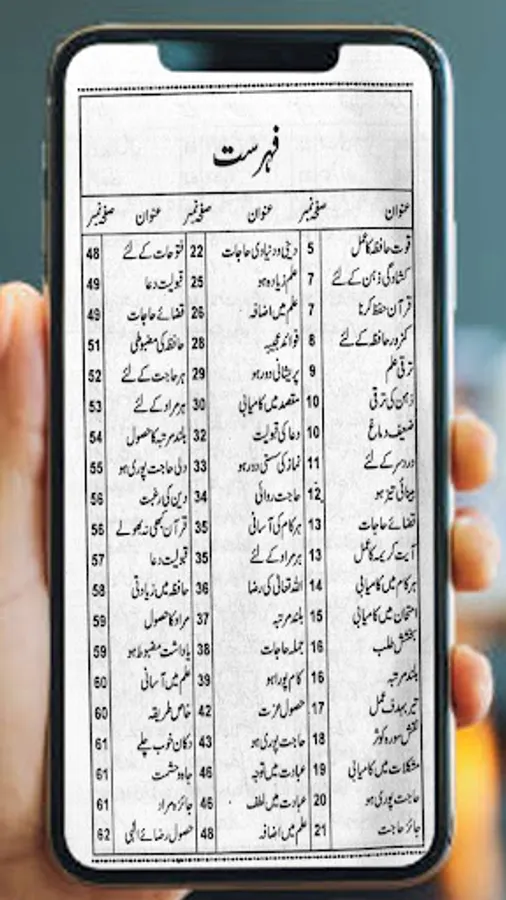 فہرست
عنوان صفحہ نمبر عنوان صفحہ نمبر عنوان صفحہ نمبر
قوت حافظہ کا عمل 5
کشادگی ذہن کے لئے 7
قرآن حفظ کرنا 7
کمزور حافظہ کے لئے 8
ترقی علم 9
ذہن کی ترقی 10
ضعیف دماغ 10
دردسر کے لئے 11
بینائی تیز ہو 12
قضائے حاجات 13
آیت کریمہ کا عمل 13
ہر کام میں کامیابی 14
امتحان میں کامیابی 15
بخشش طلب 16
بلند مرتبہ 16
تیر بہدف عمل 17
نقش سورہ کوثر 18
مشکلات میں کامیابی 19
حاجت پوری ہو 20
جائز حاجت 21
دینی و دنیاوی حاجات 22
علم زیادہ ہو 25
علم میں اضافہ 26
فوائد عجیبہ 28
پریشانی دور ہو 29
مقصد میں کامیابی 30
دعا کی قبولیت 32
نماز کی سستی دور ہو 33
حاجت روائی 34
ہر کام کی آسانی 35
ہر مراد کے لئے 35
اللہ تعالیٰ کی رضا 36
بلند مرتبہ 37
جملہ حاجات 38
کام پورا ہو 39
حصول عزت 42
حاجت پوری ہو 43
عبادت میں توجہ 46
عبادت میں لطف 46
علم میں اضافہ 48
فتوحات کے لئے 48
قبولیت دعا 49
قضائے حاجات 49
حافظہ کی مضبوطی 51
ہر حاجت کے لئے 52
ہر مراد کے لئے 53
بلند مرتبہ کا حصول 54
دلی حاجت پوری ہو 55
دین کی رغبت 56
قرآن کبھی نہ بھولے 56
قبولیت دعا 57
حافظہ میں زیادتی 58
مراد کا حصول 59
یاداشت مضبوط ہو 59
علم میں آسانی 60
خاص طریقہ 60
دکان خوب چلے 61
جاہ و حشمت 61
جائز مراد 61
حصول رضائے الٰہی 62